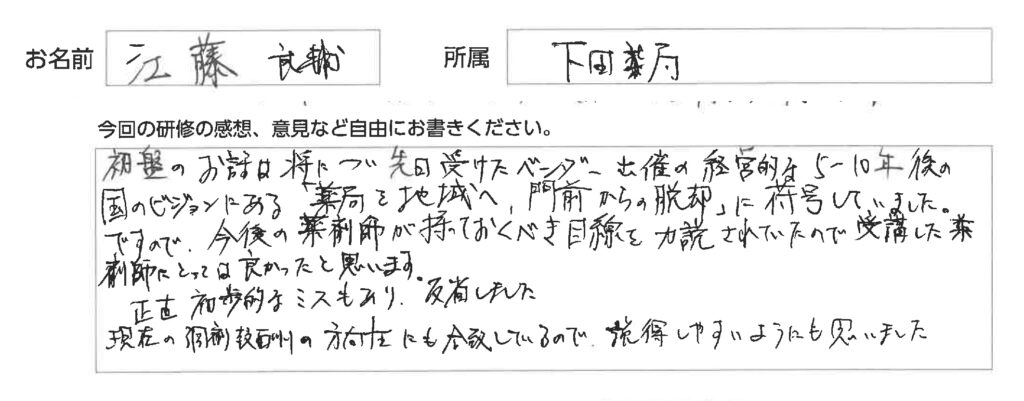 お名前 江藤 良輔 所属 下田薬局
今回の研修の感想、意見など自由にお書きください。
初盤のお話は特につい先日受けたベンダー出催の経営的な5~10年後の
国のビジョンにある「薬局を地域へ、門前からの脱却」に符号していました。
ですので、今後の薬剤師が持っておくべき目線を力説されていたので受講した薬
剤師にとっては良かったと思います。
正直初歩的なミスもあり、反省しました
現在の調剤報酬の方向性にも合致しているので、説得しやすいようにも思いました